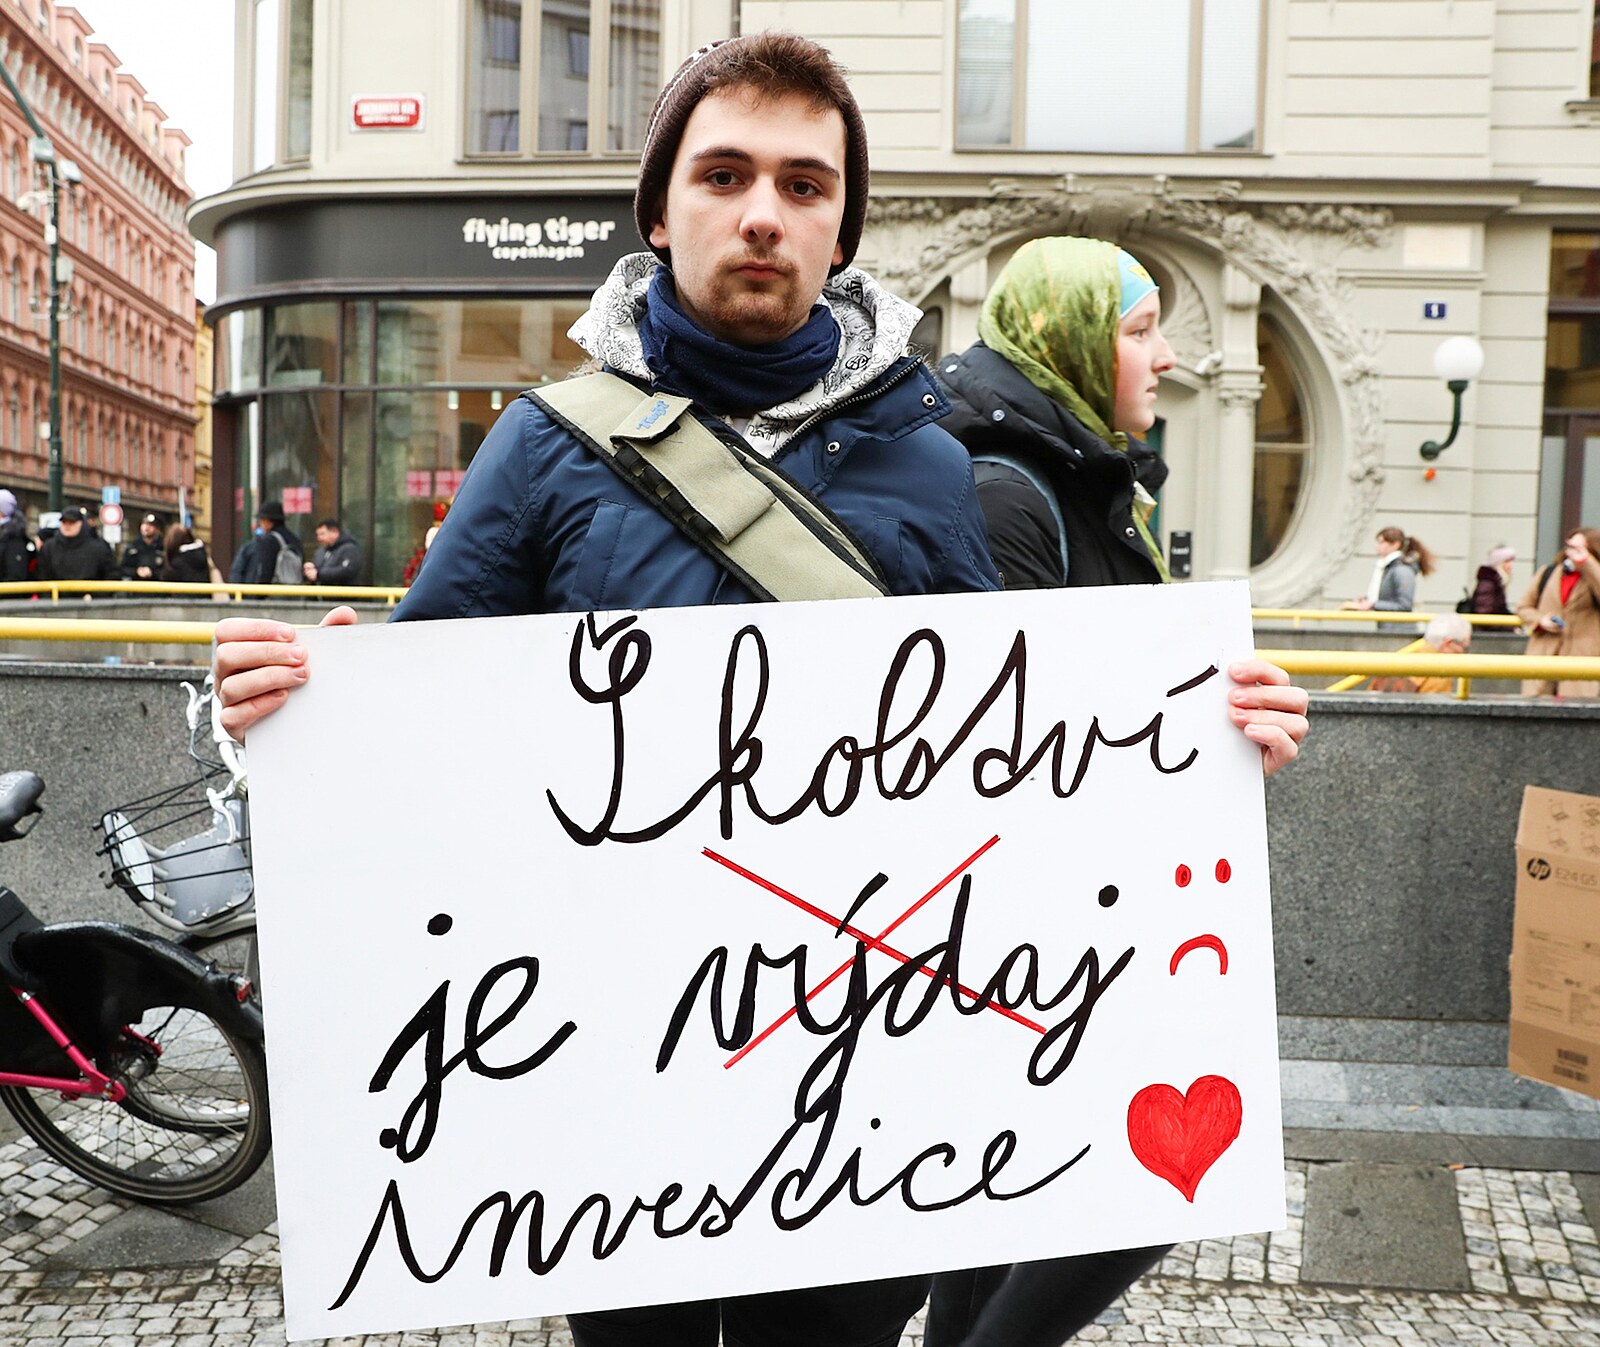 flying tiger
copenhagen
Školství
je výdaj
investice
hp E24 G5